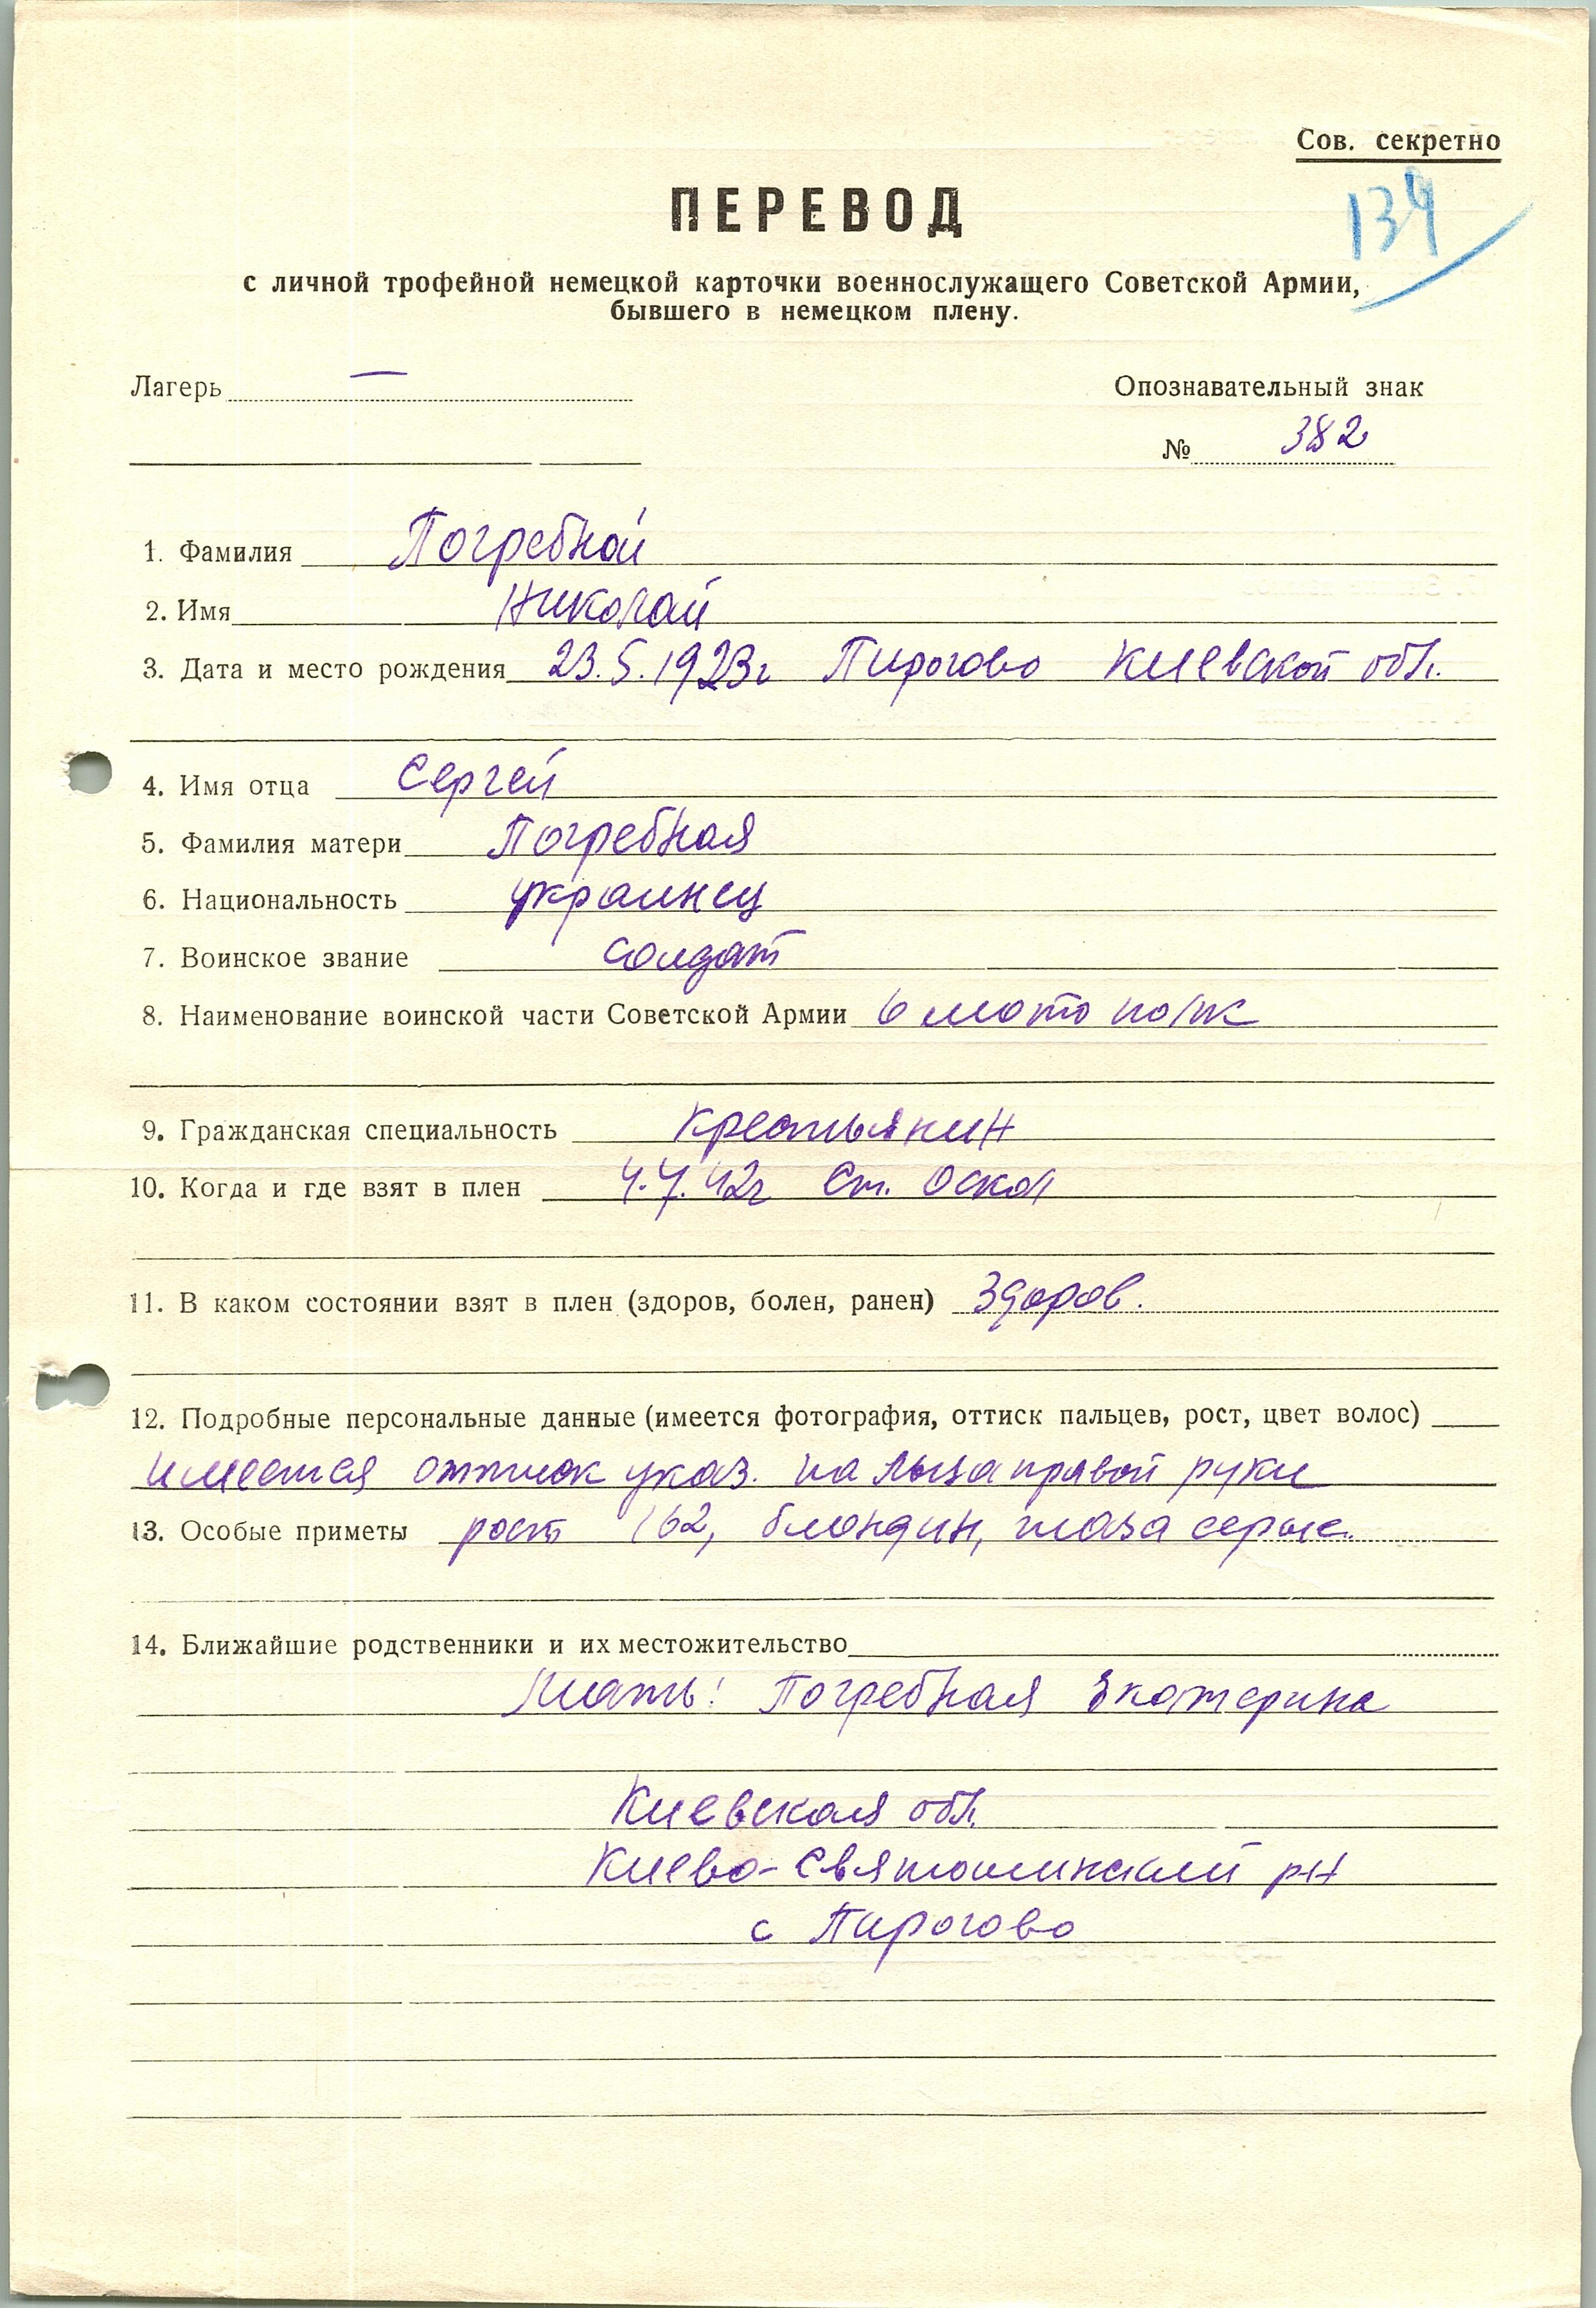 Сов. секретно
134
ПЕРЕВОД
с личной трофейной немецкой карточки военнослужащего Советской Армии,
бывшего в немецком плену.
Лагерь — Опознавательный знак
№ 382
1. Фамилия Погребной
2. Имя Николай
3. Дата и место рождения 23.5.1923г Пирогово Киевской обл.
4. Имя отца Сергей
5. Фамилия матери Погребная
6. Национальность украинец
7. Воинское звание солдат
8. Наименование воинской части Советской Армии 6 мото полк
9. Гражданская специальность крестьянин
10. Когда и где взят в плен 4.7.42г Ст. Оскол
11. В каком состоянии взят в плен (здоров, болен, ранен) Здоров.
12. Подробные персональные данные (имеется фотография, оттиск пальцев, рост, цвет волос)
имеется оттиск указ. пальца правой руки
13. Особые приметы рост 162, блондин, глаза серые.
14. Ближайшие родственники и их местожительство
Мать: Погребная Екатерина
Киевская обл.
Киево-Святошинский рн
с Пирогово